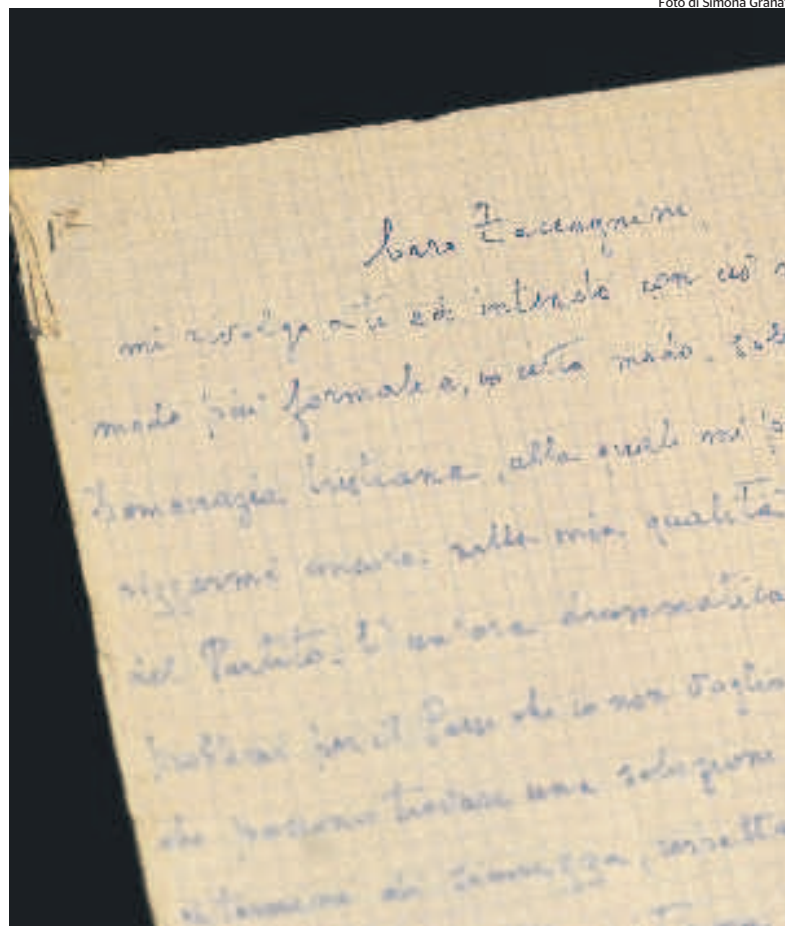 Foto di Simona Grana
1°
Caro Zaccagnini,
mi rivolgo a te ed intendo con ciò
modo più formale e, in certo modo,
Democrazia Cristiana, alla quale mi
ancora nella mia qualità
del Partito. È un'ora drammatica
problemi per il Paese che io non voglio
che possono trovare una soluzione
termini di sicurezza,